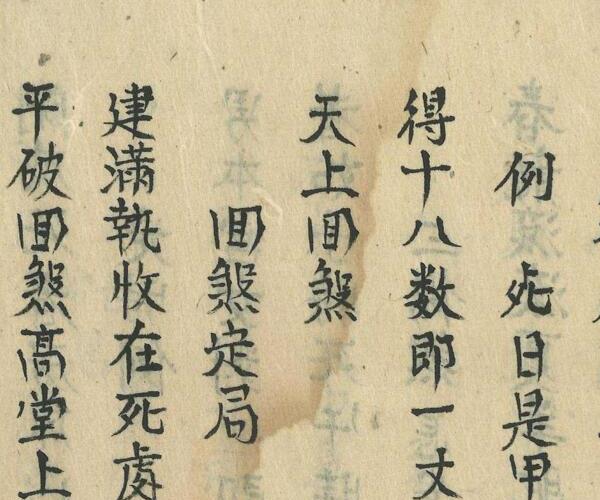 例 死日是甲
得十八数即一丈
天上囬煞
囬煞定局
建滿執收在死處
平破囬煞高堂上